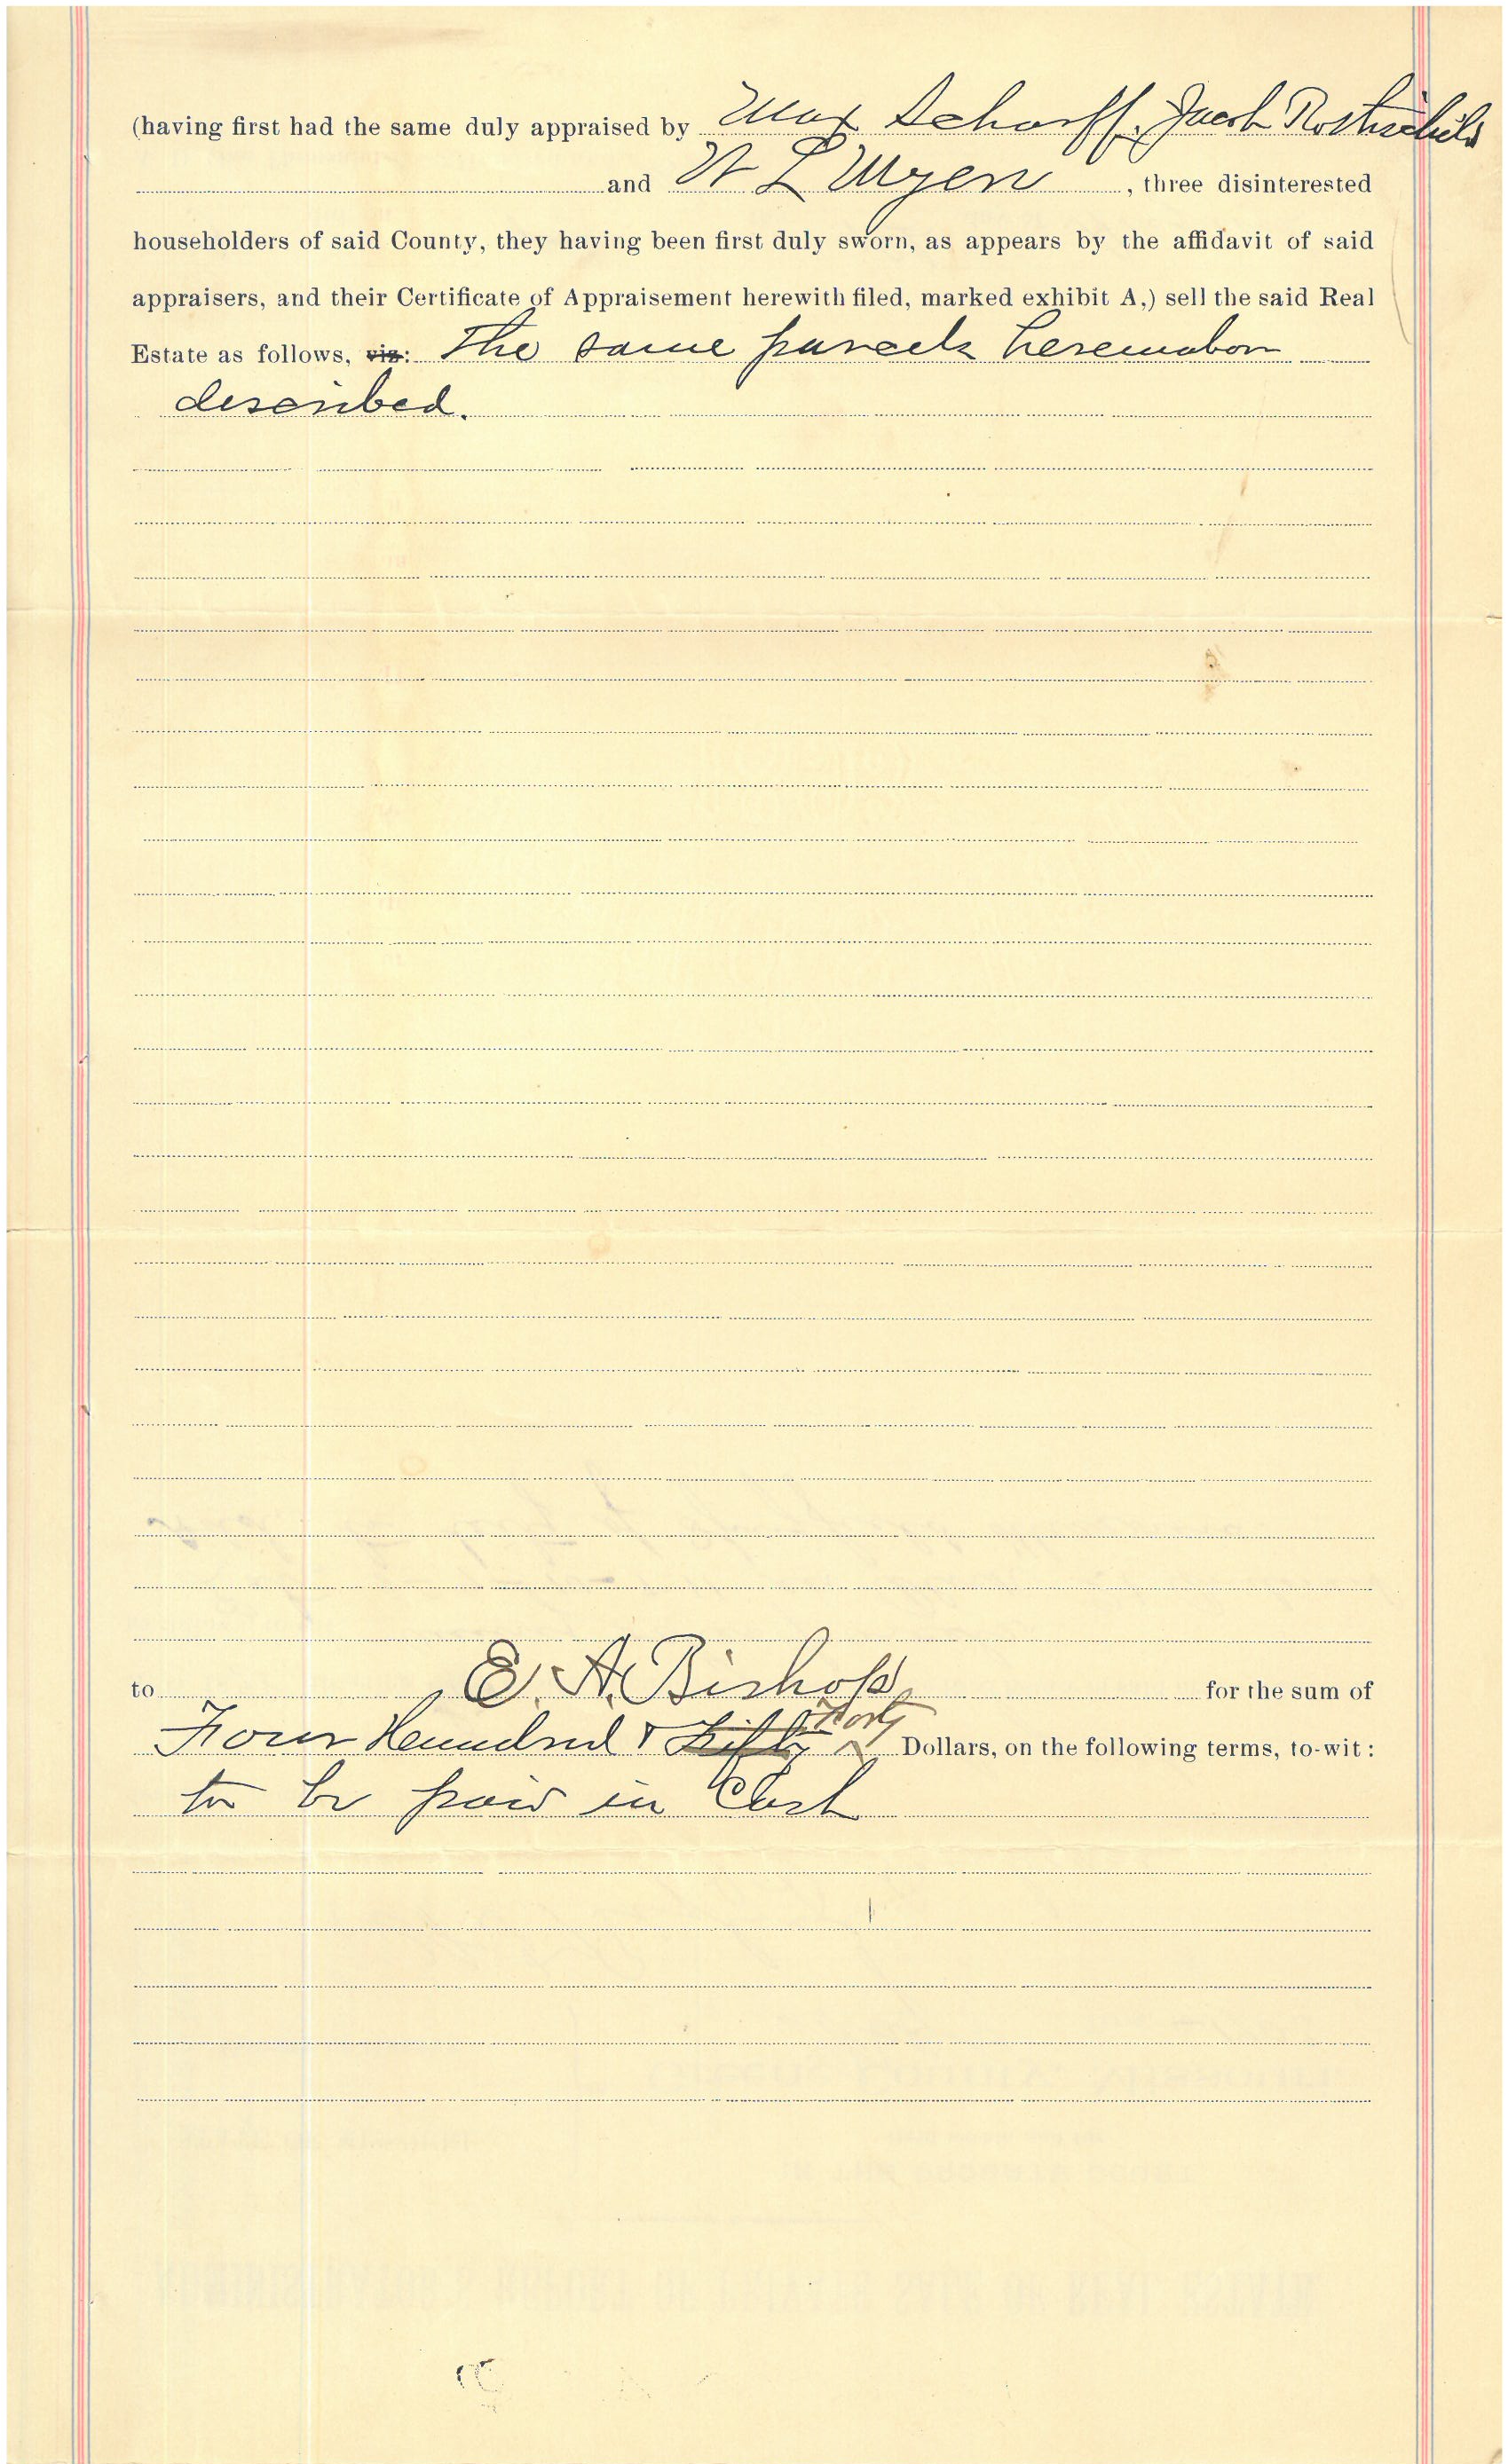 (having first had the same duly appraised by Max Scharff, Jacob Rothschild
and W L Myen, three disinterested
householders of said County, they having been first duly sworn, as appears by the affidavit of said
appraisers, and their Certificate of Appraisement herewith filed, marked exhibit A,) sell the said Real
Estate as follows, viz: The same parcels hereinabov
described.
to E. A. Bishop for the sum of
Four Hundred & Fifty Forty Dollars, on the following terms, to-wit:
to be paid in Cash